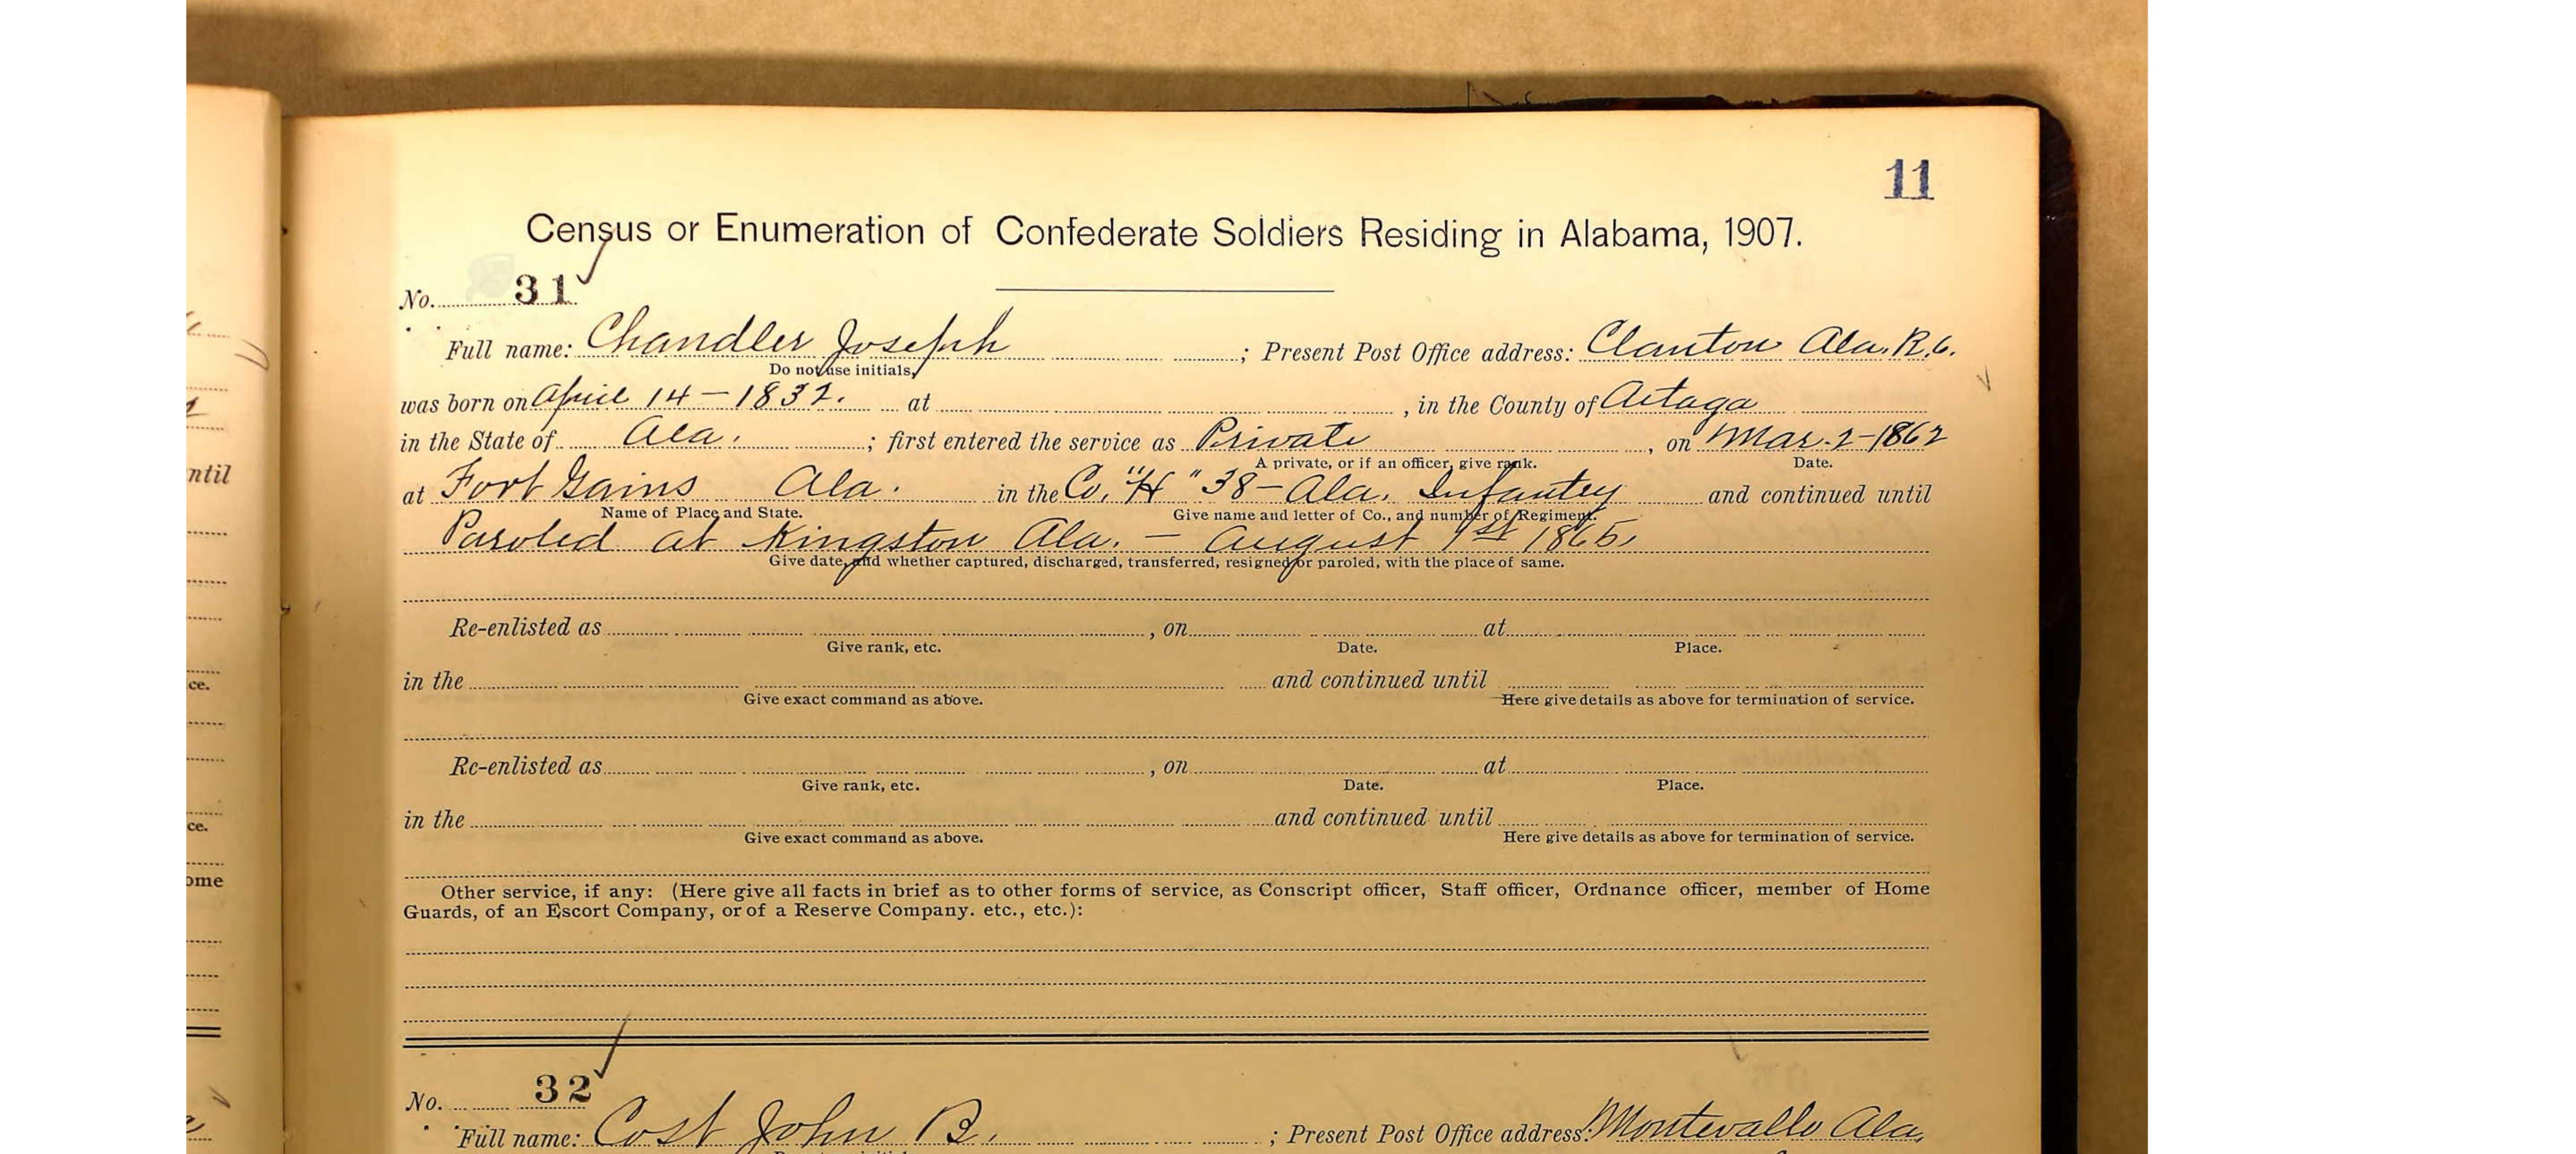 11
Census or Enumeration of Confederate Soldiers Residing in Alabama, 1907.
No. 31
Full name: Chandler Joseph ; Present Post Office address: Clanton Ala. R.6.
Do not use initials.
was born on April 14 – 1832. at , in the County of Autaga
in the State of Ala. ; first entered the service as Private , on Mar. 2-1862
A private, or if an officer, give rank. Date.
at Fort Gains Ala. in the Co. "H" 38 – Ala. Infantry and continued until
ntil
Name of Place and State. Give name and letter of Co., and number of Regiment.
Paroled at Kingston Ala. – August 1st 1865.
Give date, and whether captured, discharged, transferred, resigned or paroled, with the place of same.
Re-enlisted as , on at
Give rank, etc. Date. Place.
in the and continued until
ce.
Give exact command as above. Here give details as above for termination of service.
Re-enlisted as , on at
Give rank, etc. Date. Place.
in the and continued until
ce.
Give exact command as above. Here give details as above for termination of service.
ome
Other service, if any: (Here give all facts in brief as to other forms of service, as Conscript officer, Staff officer, Ordnance officer, member of Home
Guards, of an Escort Company, or of a Reserve Company. etc., etc.):
No. 32
Full name: Cost John B. ; Present Post Office address: Montevallo Ala.